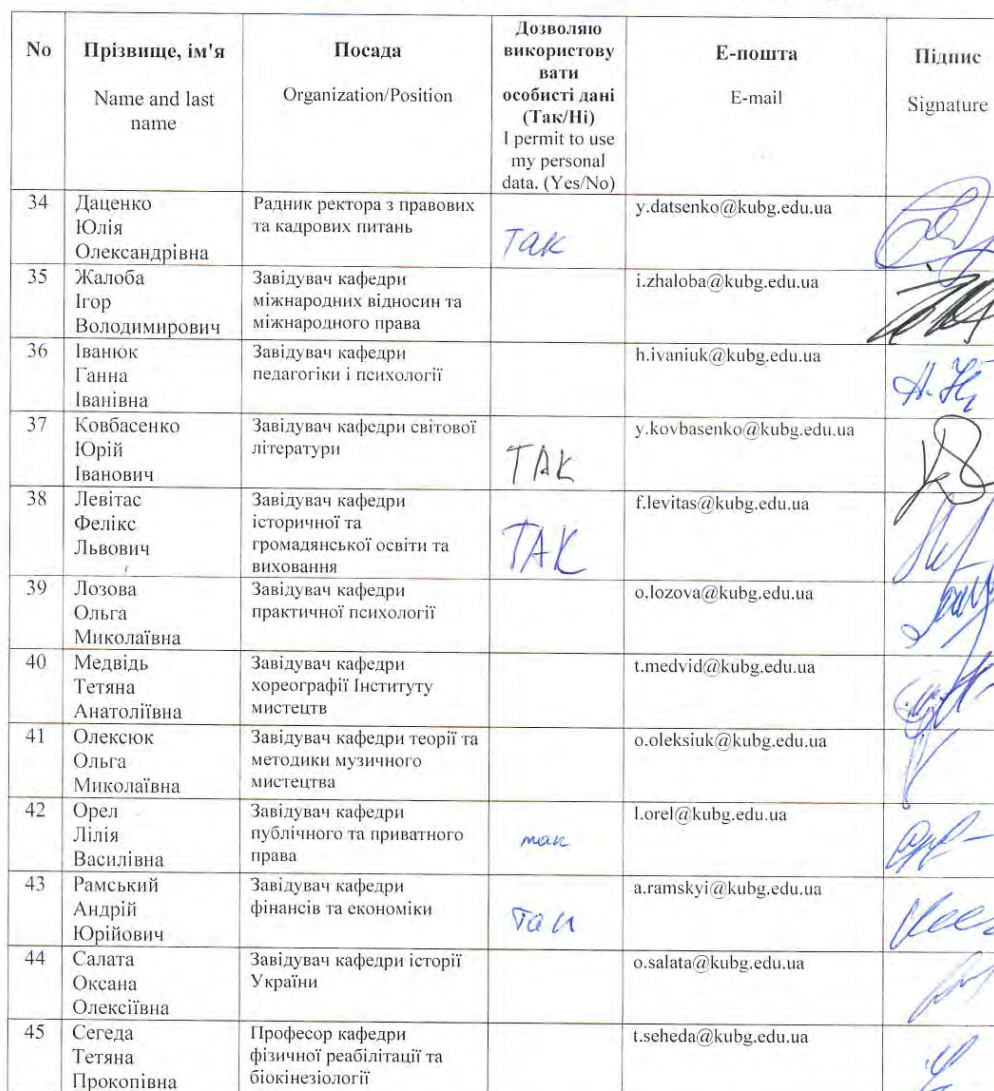 No
Прізвище, ім'я
Name and last
name
Посада
Organization/Position
Дозволяю
використову
вати
особисті дані
(Так/Ні)
I permit to use
my personal
data. (Yes/No)
Е-пошта
E-mail
Підпис
Signature
34
Даценко
Юлія
Олександрівна
Радник ректора з правових
та кадрових питань
Так
y.datsenko@kubg.edu.ua
35
Жалоба
Ігор
Володимирович
Завідувач кафедри
міжнародних відносин та
міжнародного права
i.zhaloba@kubg.edu.ua
36
Іванюк
Ганна
Іванівна
Завідувач кафедри
педагогіки і психології
h.ivaniuk@kubg.edu.ua
37
Ковбасенко
Юрій
Іванович
Завідувач кафедри світової
літератури
ТАК
y.kovbasenko@kubg.edu.ua
38
Левітас
Фелікс
Львович
Завідувач кафедри
історичної та
громадянської освіти та
виховання
ТАК
f.levitas@kubg.edu.ua
39
Лозова
Ольга
Миколаївна
Завідувач кафедри
практичної психології
o.lozova@kubg.edu.ua
40
Медвідь
Тетяна
Анатоліївна
Завідувач кафедри
хореографії Інституту
мистецтв
t.medvid@kubg.edu.ua
41
Олексюк
Ольга
Миколаївна
Завідувач кафедри теорії та
методики музичного
мистецтва
o.oleksiuk@kubg.edu.ua
42
Орел
Лілія
Василівна
Завідувач кафедри
публічного та приватного
права
так
l.orel@kubg.edu.ua
43
Рамський
Андрій
Юрійович
Завідувач кафедри
фінансів та економіки
Так
a.ramskyi@kubg.edu.ua
44
Салата
Оксана
Олексіївна
Завідувач кафедри історії
України
o.salata@kubg.edu.ua
45
Сегеда
Тетяна
Прокопівна
Професор кафедри
фізичної реабілітації та
біокінезіології
t.seheda@kubg.edu.ua